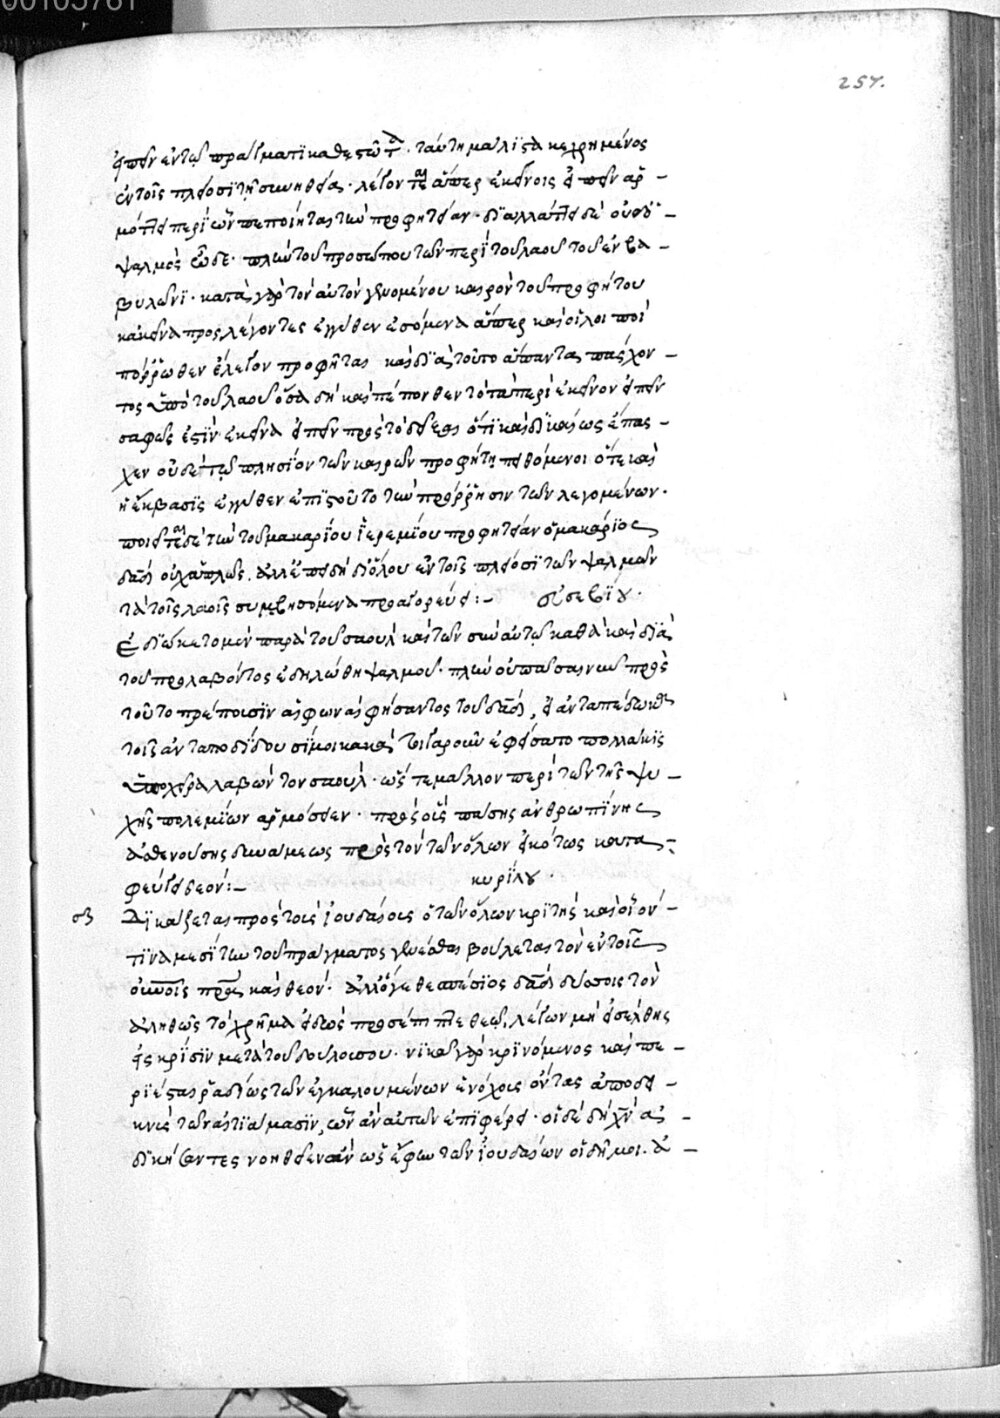 00105761
257.
εἰπεῖν ἐν τῷ πράγματι καθεστῶτα. ταύτῃ μάλιστα κεχρημένος
ἐν τοῖς πλείοσι τῇ συνηθείᾳ. λέγονται ἅπερ ἐκείνοις εἰπεῖν ἁρ-
μόττει περὶ ὧν πεποίηται τὴν προφητείαν. διαλλάττει δὲ οὐδὲ
ψαλμὸς ὧδε. πλὴν τοῦ προσώπου τῶν περὶ τοῦ λαοῦ τοῦ ἐν βα-
βυλῶνι. κατὰ γὰρ τὸν αὐτὸν γενομένου καιρὸν τοῦ προφήτου
κἀκεῖνα προσλέγοντες ἐγγύθεν ἐσόμενα ἅπερ καὶ οἱ λοιποὶ
πόρρωθεν ἔλεγον προφῆται καὶ διὰ τοῦτο ἅπαντα πάσχον-
τος ὑπὸ τοῦ λαοῦ ὅσα δὴ καὶ πέπονθεν τὸ τὰ περὶ ἐκείνον εἰπεῖν
σαφῶς ἐστὶν ἐκεῖνα εἰπεῖν πρὸς τὸ δεῖξαι ὅτι καὶ δικαίως ἔπασ-
χεν οὐδὲ τῷ πλησίον τῶν καιρῶν προφήτῃ πειθόμενοι ὅτε καὶ
ἡ ἔκβασις ἐγγύθεν ἐπιστοῦτο τὴν πρόρρησιν τῶν λεγομένων.
ποιεῖται δὲ τὴν τοῦ μακαρίου ἱερεμίου προφητείαν ὁ μακάριος
δαδ οὐχ ἁπλῶς. ἀλλ' ἐπειδὴ διόλου ἐν τοῖς πλείοσι τῶν ψαλμῶν
τὰ τοῖς λαοῖς συμβησόμενα προαγορεύει:- εὐσεβίου.
Ἐδιώκετο μὲν παρὰ τοῦ σαοὺλ καὶ τῶν σὺν αὐτῷ καθὰ καὶ διὰ
τοῦ προλαβόντος ἐδηλώθη ψαλμοῦ. πλὴν οὐ πᾶσαι νῦν πρὸς
τοῦτο πρέπουσιν αἱ φωναὶ φήσαντος τοῦ δαδ, εἰ ἀνταπέδωκα
τοῖς ἀνταποδίδουσί μοι κακά τί γὰρ οὖν ἐφείσατο πολλάκις
ὑποχείρα λαβὼν τὸν σαούλ. ὥστε μᾶλλον περὶ τῶν τῆς ψυ-
χῆς πολεμίων ἁρμόσειεν. πρὸς οἷς πάσης ἀνθρωπίνης
ἀσθενούσης δυνάμεως πρὸς τὸν τῶν ὅλων εἰκότως κατα-
φεύγει θεόν:- κυρίλου.
σβ Δικάζεται πρὸς τοὺς ἰουδαίους ὁ τῶν ὅλων κριτὴς καὶ οἷον
τινα μεσίτην τοῦ πράγματος γενέσθαι βούλεται τὸν ἐν τοῖς
οὐνοῖς πρα καὶ θεόν. ἀλλ' ὅγε θεσπέσιος δαδ δέδοικε τὸν
ἀληθῶς τὸ χρῆμα εἰδὼς προσέπιπτε θεῷ, λέγων μὴ εἰσέλθῃς
εἰς κρίσιν μετὰ τοῦ δούλου σου. νικᾷ γὰρ κρινόμενος καὶ πε-
ριέσται ῥαδίως τῶν ἐγκαλουμένων ἐνόχους ὄντας ἀποδει-
κνὺς τῶν αἰτιαμάσιν, ὧν ἂν αὐτῶν ἐπιφέρει. οἱ δὲ δὴ χν ἀ-
δικήσαντες νοηθεῖεν ἂν ὡς ἔφην τῶν ἰουδαίων οἱ δῆμοι. ἀ-